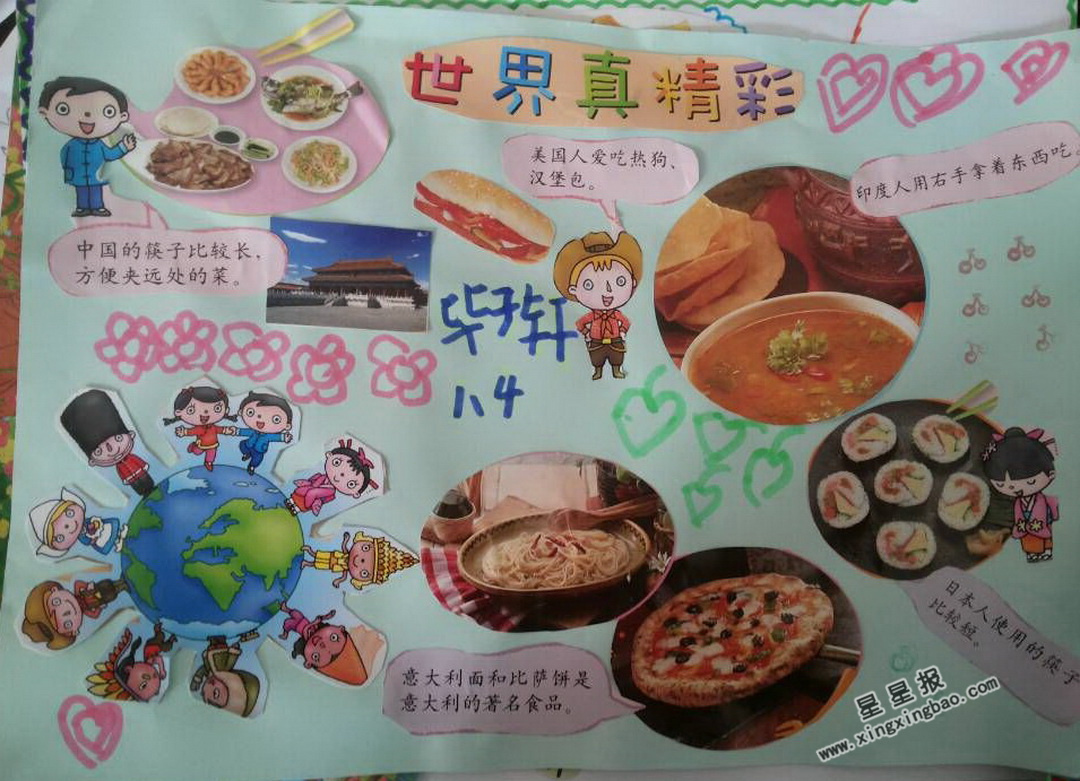 世界真精彩
美国人爱吃热狗、
汉堡包。
印度人用右手拿着东西吃。
中国的筷子比较长，
方便夹远处的菜。
柴子轩
小4
意大利面和比萨饼是
意大利的著名食品。
日本人使用的筷子
比较短。
星星报
www.xingxingbao.com